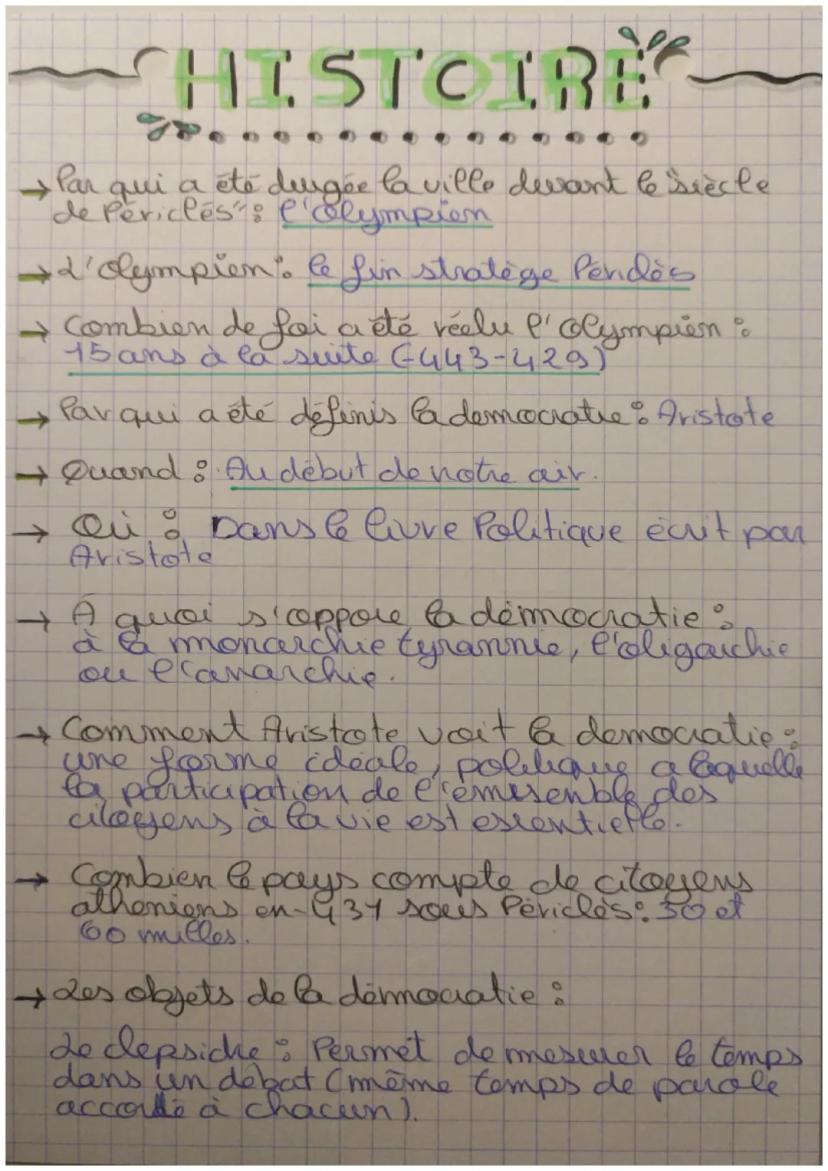 HISTOIRE
→ Par qui a été dirigée la ville devant le "siècle
de Périclès" : l'olympien
→ L'olympien : le fin stratège Périclès
→ Combien de foi a été réelu l'Olympien :
15 ans à la suite (-443-429)
→ Par qui a été définis la democratie : Aristote
→ Quand : Au début de notre air.
→ Où : Dans le livre Politique écrit par
Aristote
→ A quoi s'oppose la démocratie :
à la monarchie tyrannie, l'oligarchie
ou l'anarchie.
→ Comment Aristote voit la democratie :
une forme idéale, politique a laquelle
la participation de l' des
citoyens à la vie est essentielle.
→ Combien le pays compte de citoyens
atheniens en -431 sous Périclès : 30 et
60 milles.
→ Les objets de la démocratie :
Le clepsidre : Permet de mesurer le temps
dans un débat (même temps de parole
accordé à chacun).